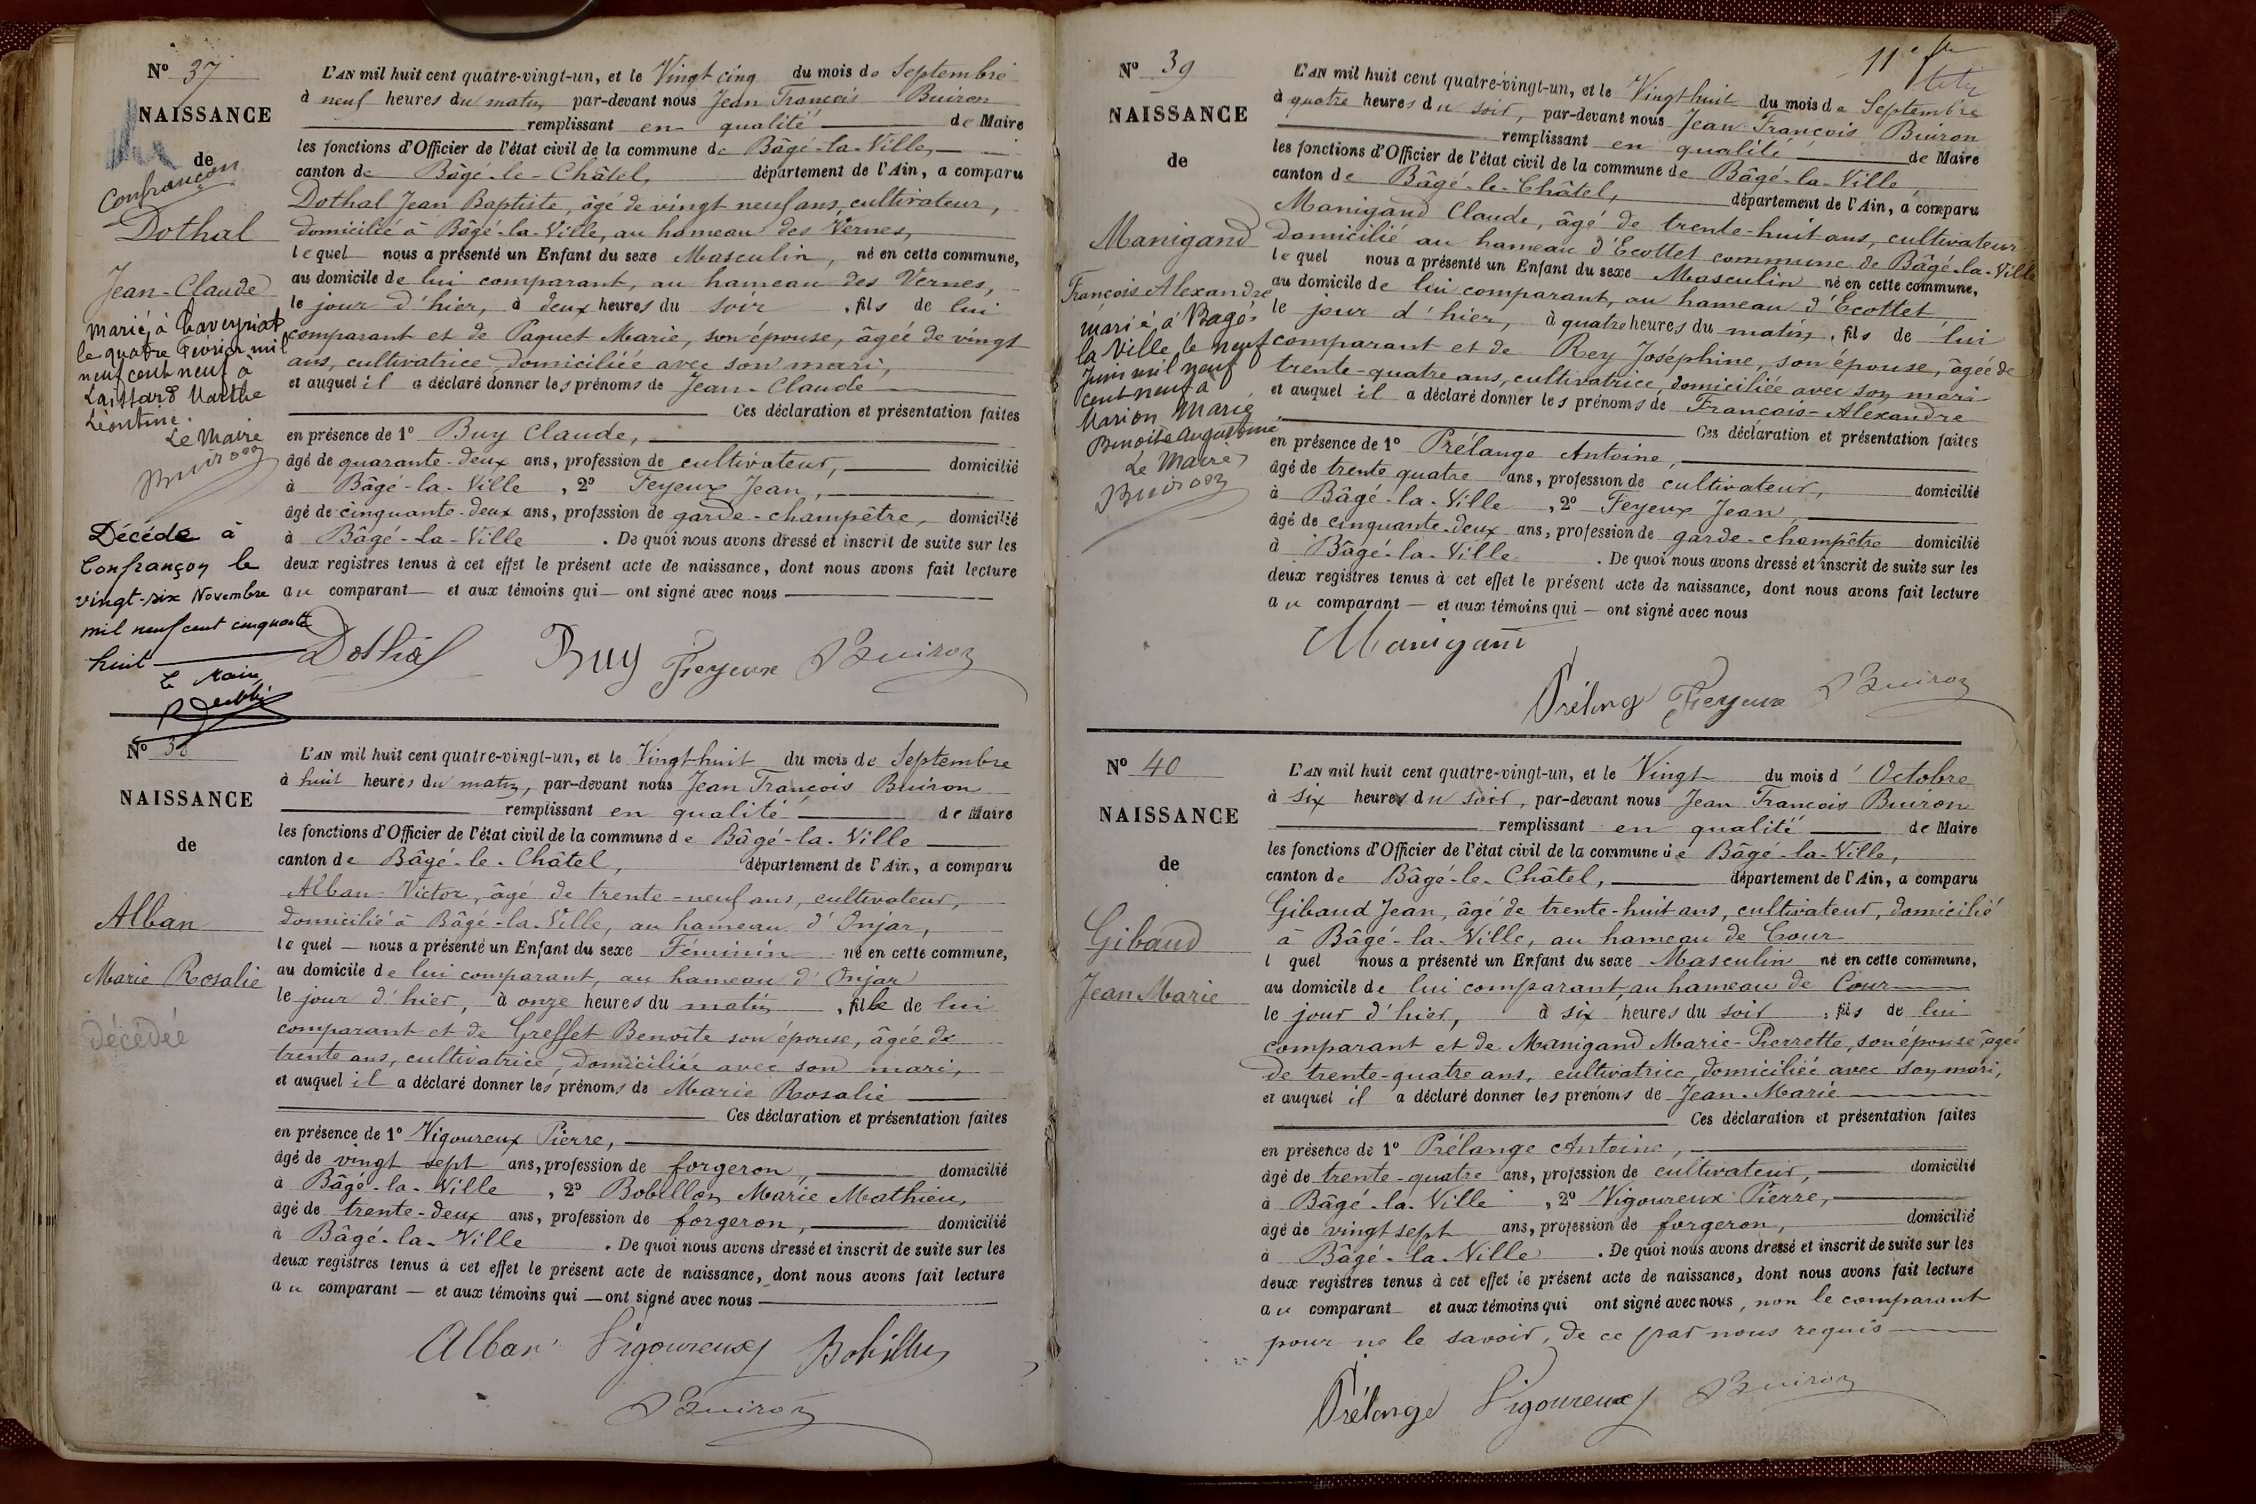 Nº 37
NAISSANCE
de
Confrançon
Dothal
Jean-Claude
Marié, à Vaveyriat
le quatre Février mil
neuf cent neuf à
Marthe
Léontine.
Le Maire
Buiron
Décédé à
Confrançon le
vingt-six Novembre
mil neuf cent cinquante
huit
Le Maire
L'AN mil huit cent quatre-vingt-un, et le Vingt cinq du mois de Septembre
à neuf heures du matin, par-devant nous Jean François Buiron
remplissant en qualité de Maire
les fonctions d'Officier de l'état civil de la commune de Bâgé-la-Ville,
canton de Bâgé-le-Châtel, département de l'Ain, a comparu
Dothal Jean Baptiste, âgé de vingt neuf ans, cultivateur,
domicilié à Bâgé-la-Ville, au hameau des Vernes,
lequel nous a présenté un Enfant du sexe Masculin, né en cette commune,
au domicile de lui comparant, au hameau des Vernes,
le jour d'hier, à deux heures du soir, fils de lui
comparant et de Paquet Marie, son épouse, âgée de vingt
ans, cultivatrice, domiciliée avec son mari,
et auquel il a déclaré donner les prénoms de Jean-Claude
Ces déclaration et présentation faites
en présence de 1º Buy Claude,
âgé de quarante-deux ans, profession de cultivateur, domicilié
à Bâgé-la-Ville, 2º Feyeux Jean,
âgé de cinquante-deux ans, profession de garde-champêtre, domicilié
à Bâgé-la-Ville. De quoi nous avons dressé et inscrit de suite sur les
deux registres tenus à cet effet le présent acte de naissance, dont nous avons fait lecture
au comparant et aux témoins qui ont signé avec nous
Dothal Buy Feyeux Buiron
Nº 38
NAISSANCE
de
Alban
Marie Rosalie
décédée
L'AN mil huit cent quatre-vingt-un, et le Vingt huit du mois de Septembre
à huit heures du matin, par-devant nous Jean François Buiron
remplissant en qualité de Maire
les fonctions d'Officier de l'état civil de la commune de Bâgé-la-Ville
canton de Bâgé-le-Châtel, département de l'Ain, a comparu
Alban Victor, âgé de trente-neuf ans, cultivateur,
domicilié à Bâgé-la-Ville, au hameau d'Onjar,
lequel nous a présenté un Enfant du sexe Féminin né en cette commune,
au domicile de lui comparant, au hameau d'Onjar
le jour d'hier, à onze heures du matin, fille de lui
comparant et de Greffet Benoîte son épouse, âgée de
trente ans, cultivatrice, domiciliée avec son mari,
et auquel il a déclaré donner les prénoms de Marie Rosalie
Ces déclaration et présentation faites
en présence de 1º Vigoureux Pierre,
âgé de vingt sept ans, profession de forgeron, domicilié
à Bâgé-la-Ville, 2º Bobillon Marie Mathieu,
âgé de trente-deux ans, profession de forgeron, domicilié
à Bâgé-la-Ville. De quoi nous avons dressé et inscrit de suite sur les
deux registres tenus à cet effet le présent acte de naissance, dont nous avons fait lecture
au comparant et aux témoins qui ont signé avec nous
Alban Vigoureux Bobillon
Buiron
11e
Nº 39
NAISSANCE
de
Manigand
François Alexandre
marié à Bagé-
la Ville le neuf
Juin mil neuf
cent neuf à
Marion Marie
Benoîte Augustine
Le Maire
Buiron
L'AN mil huit cent quatre-vingt-un, et le Vingt huit du mois de Septembre
à quatre heures du soir, par-devant nous Jean François Buiron
remplissant en qualité de Maire
les fonctions d'Officier de l'état civil de la commune de Bâgé-la-Ville
canton de Bâgé-le-Châtel, département de l'Ain, a comparu
Manigand Claude, âgé de trente-huit ans, cultivateur
domicilié au hameau d'Ecottet commune de Bâgé-la-Ville
lequel nous a présenté un Enfant du sexe Masculin né en cette commune,
au domicile de lui comparant, au hameau d'Ecottet
le jour d'hier, à quatre heures du matin, fils de lui
comparant et de Rey Joséphine, son épouse, âgée de
trente-quatre ans, cultivatrice, domiciliée avec son mari
et auquel il a déclaré donner les prénoms de François-Alexandre
Ces déclaration et présentation faites
en présence de 1º Prélange Antoine,
âgé de trente quatre ans, profession de cultivateur, domicilié
à Bâgé-la-Ville, 2º Feyeux Jean
âgé de cinquante-deux ans, profession de garde-champêtre domicilié
à Bâgé-la-Ville. De quoi nous avons dressé et inscrit de suite sur les
deux registres tenus à cet effet le présent acte de naissance, dont nous avons fait lecture
au comparant et aux témoins qui ont signé avec nous
Manigand
Prélange Feyeux Buiron
Nº 40
NAISSANCE
de
Gibaud
Jean Marie
L'AN mil huit cent quatre-vingt-un, et le Vingt du mois d'Octobre
à six heures du soir, par-devant nous Jean François Buiron
remplissant en qualité de Maire
les fonctions d'Officier de l'état civil de la commune de Bâgé-la-Ville,
canton de Bâgé-le-Châtel, département de l'Ain, a comparu
Gibaud Jean, âgé de trente-huit ans, cultivateur, domicilié
à Bâgé-la-Ville, au hameau de Cour
l quel nous a présenté un Enfant du sexe Masculin né en cette commune,
au domicile de lui comparant, au hameau de Cour
le jour d'hier, à six heures du soir, fils de lui
comparant et de Manigand Marie-Pierrette, son épouse, âgée
de trente-quatre ans, cultivatrice, domiciliée avec son mari,
et auquel il a déclaré donner les prénoms de Jean-Marie
Ces déclaration et présentation faites
en présence de 1º Prélange Antoine,
âgé de trente-quatre ans, profession de cultivateur, domicilié
à Bâgé-la-Ville, 2º Vigoureux Pierre,
âgé de vingt sept ans, profession de forgeron, domicilié
à Bâgé-la-Ville. De quoi nous avons dressé et inscrit de suite sur les
deux registres tenus à cet effet le présent acte de naissance, dont nous avons fait lecture
au comparant et aux témoins qui ont signé avec nous, non le comparant
pour ne le savoir, de ce par nous requis
Prélange Vigoureux Buiron